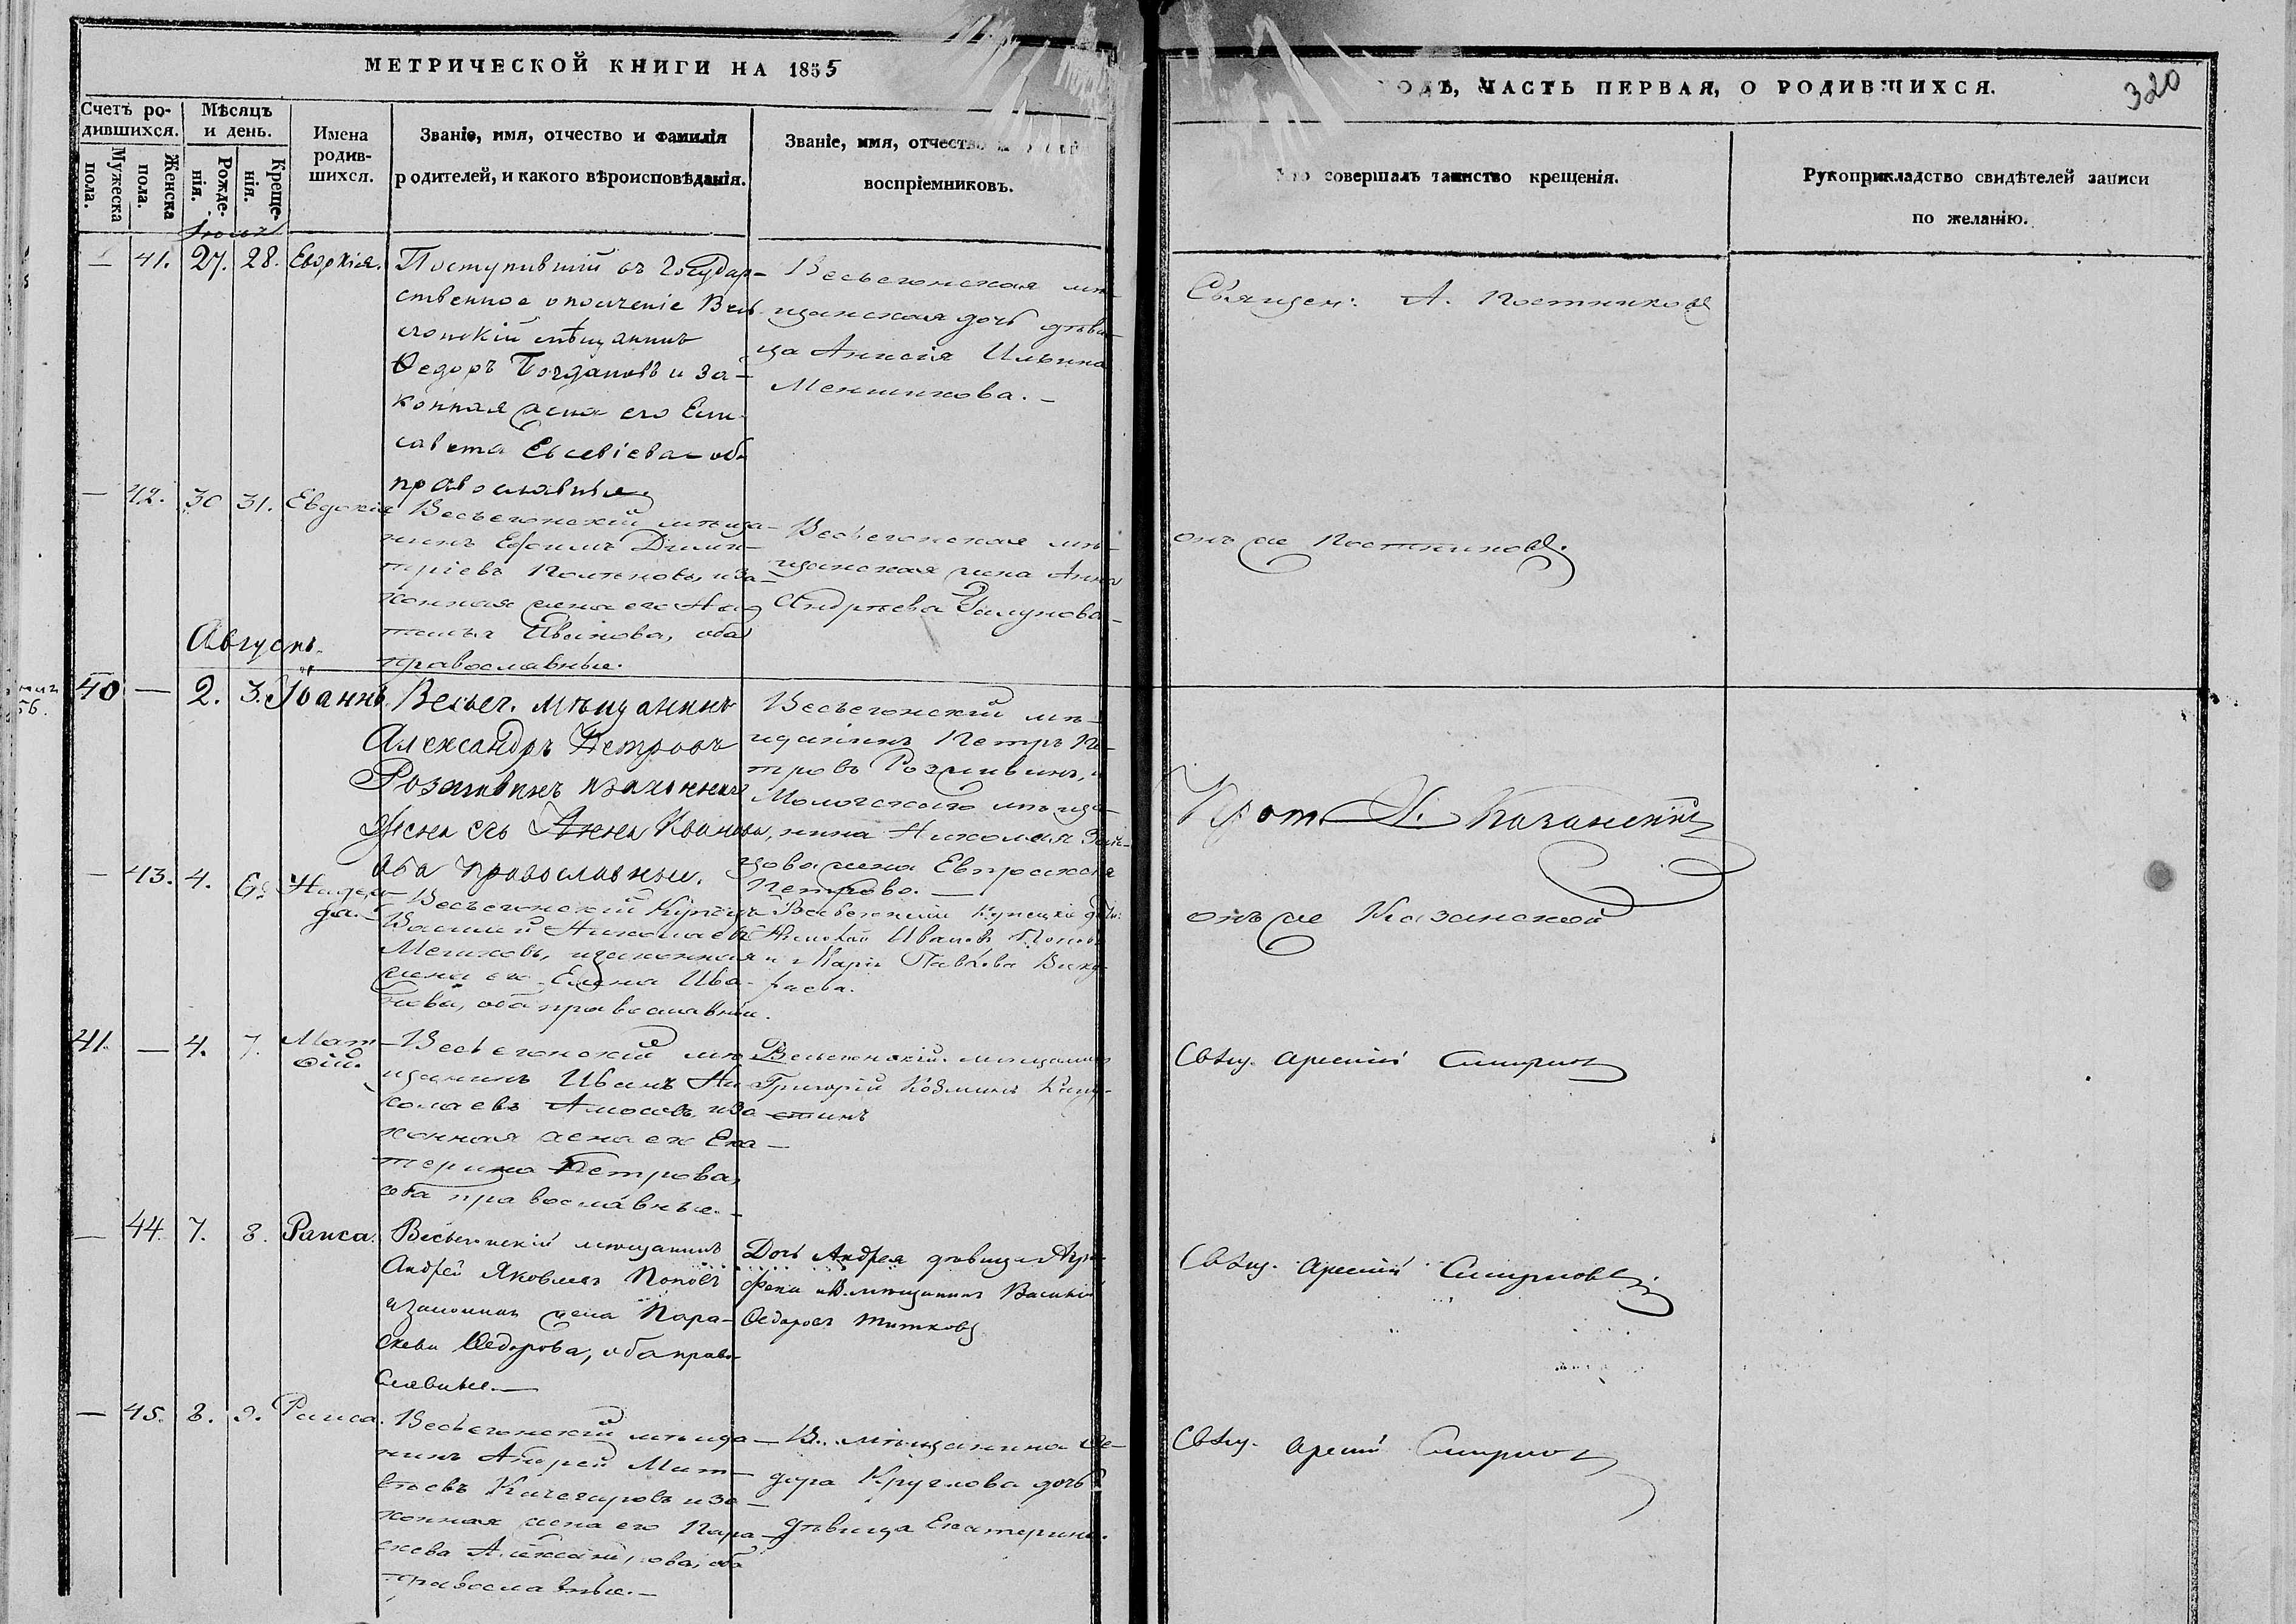 МЕТРИЧЕСКОЙ КНИГИ НА 1855
ОДЪ, ЧАСТЬ ПЕРВАЯ, О РОДИВШИХСЯ.
320
Счетъ ро-
дившихся.
Мужеска пола.
Женска пола.
Мѣсяцъ
и день.
Рожде-
нія.
Креще-
нія.
Имена
родив-
шихся.
Званіе, имя, отчество и фамилія
родителей, и какого вѣроисповѣданія.
Званіе, имя, отчество
воспріемниковъ.
совершалъ таинство крещенія.
Рукоприкладство свидѣтелей записи
по желанію.
— 41. 27. 28.
Поступившій въ Государ-
ственное ополченіе Весь
егонскій мѣщанинъ
Ѳедоръ Богдановъ и за-
конная жена его Ели-
савета Евсевіева оба
православные.
Весьегонская мѣ-
щанская дочь дѣви-
ца Анисія Ильина
Меншикова. —
Священ: А. Постниковъ
— 42. 30 31. Евдокія
Весьегонскій мѣща-
нинъ Ефимъ Дими-
тріевъ и за-
конная жена его На-
талья Иванова, оба
православные.
Весьегонская мѣ-
щанская жена Анна
Андреева
онъ же Постниковъ.
Августъ.
40 — 2. 3. Іоаннъ
Весьег. мѣщанинъ
Александръ Петровъ
Розживинъ и законная
жена его Анна Иванова,
оба православные.
Весьегонскій мѣ-
щанинъ Петръ Пе-
тровъ Розживинъ, и
Мологскаго мѣща-
нина Николая
жена Евпраксія
Петрова. —
Прот. Казанскій
— 43. 4. 6. Надеж-
да.
Весьегонскій Купецъ
Василій Николаевъ
и законная
жена его Елена Ива-
нова, оба православные.
Весьегонскій Купецкій
Николай Иванов Попов
и Марія Павлова
онъ же Казанской
41. — 4. 7. Мат-
ѳій.
Весьегонскій мѣ-
щанинъ Иванъ Ни-
колаевъ Амосовъ и за
конная жена его Ека-
терина Петрова,
оба православные. —
Весьегонскій мѣщанинъ
Григорій Козминъ Капу-
стинъ
Свящ. Арсеній Смирнов
— 44. 7. 8. Раиса.
Весьегонскій мѣщанинъ
Андрей Яковлев Попов
и законная жена Пара-
скева Ѳедорова, оба право-
славные. —
Дочь Андрея дѣвица Агри-
фена и В. мѣщанинъ Василій
Ѳедоров Титковъ
Свящ. Арсеній Смирновъ
— 45. 8. 9. Раиса.
Весьегонскій мѣща-
нинъ Андрей Мат-
вѣевъ Качегаровъ и за-
конная жена его Пара-
скева оба
православные. —
В. мѣщанина Ѳе-
дора Круглова дочь
дѣвица Екатерина.
Свящ. Арсеній Смирнов